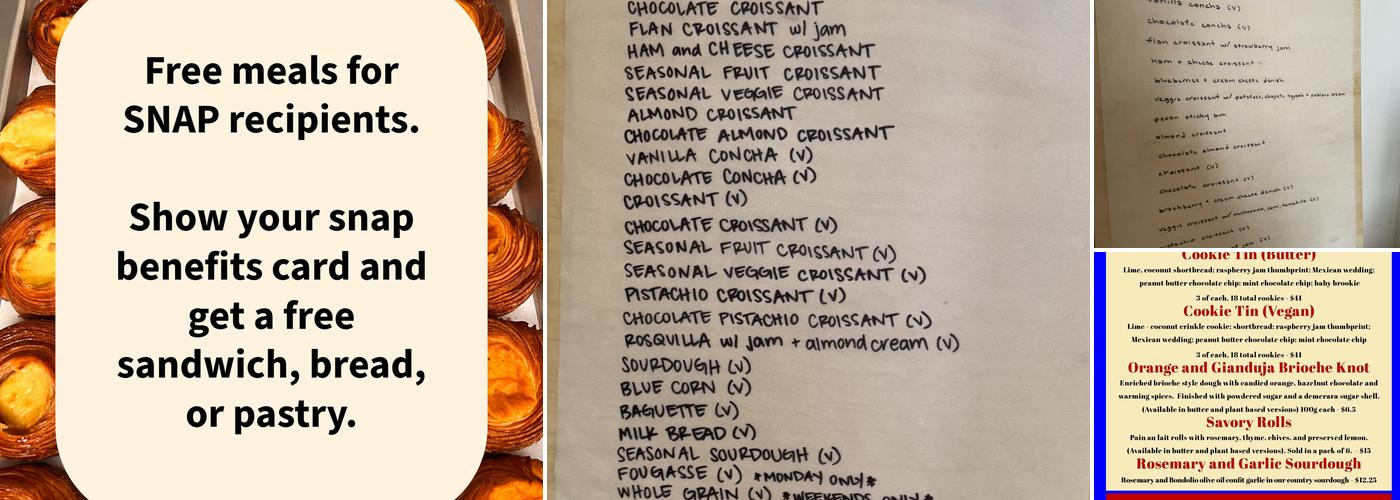 Free meals for
SNAP recipients.
Show your snap
benefits card and
get a free
sandwich, bread,
or pastry.
CHOCOLATE CROISSANT
FLAN CROISSANT w/ jam
HAM and CHEESE CROISSANT
SEASONAL FRUIT CROISSANT
SEASONAL VEGGIE CROISSANT
ALMOND CROISSANT
CHOCOLATE ALMOND CROISSANT
VANILLA CONCHA (V)
CHOCOLATE CONCHA (V)
CROISSANT (V)
CHOCOLATE CROISSANT (V)
SEASONAL FRUIT CROISSANT (V)
SEASONAL VEGGIE CROISSANT (V)
PISTACHIO CROISSANT (V)
CHOCOLATE PISTACHIO CROISSANT (V)
ROSQUILLA w/ jam + almond cream (V)
SOURDOUGH (V)
BLUE CORN (V)
BAGUETTE (V)
MILK BREAD (V)
SEASONAL SOURDOUGH (V)
FOUGASSE (V) *MONDAY ONLY*
WHOLE GRAIN (V) *WEEKENDS ONLY*
vanilla concha (v)
chocolate concha (v)
flan croissant w/ strawberry jam
ham + cheese croissant
blueberries + cream cheese danish
veggie croissant w/ potatoes, chayote squash +
pecan sticky bun
almond croissant
chocolate almond croissant
croissant (v)
chocolate croissant (v)
blackberry + cream cheese danish (v)
veggie croissant w/ mushrooms, corn, tomatillo (v)
pistachio croissant (v)
jam (v)
Cookie Tin (Butter)
Lime, coconut shortbread; raspberry jam thumbprint; Mexican wedding;
peanut butter chocolate chip; mint chocolate chip; baby brookie
3 of each, 18 total cookies - $41
Cookie Tin (Vegan)
Lime - coconut crinkle cookie; shortbread; raspberry jam thumbprint;
Mexican wedding; peanut butter chocolate chip; mint chocolate chip
3 of each, 18 total cookies - $41
Orange and Gianduja Brioche Knot
Enriched brioche style dough with candied orange, hazelnut chocolate and
warming spices. Finished with powdered sugar and a demerara sugar shell.
(Available in butter and plant based versions) 100g each - $6.5
Savory Rolls
Pain au lait rolls with rosemary, thyme, chives, and preserved lemon.
(Available in butter and plant based versions). Sold in a pack of 6. - $15
Rosemary and Garlic Sourdough
Rosemary and Bondolio olive oil confit garlic in our country sourdough - $12.25